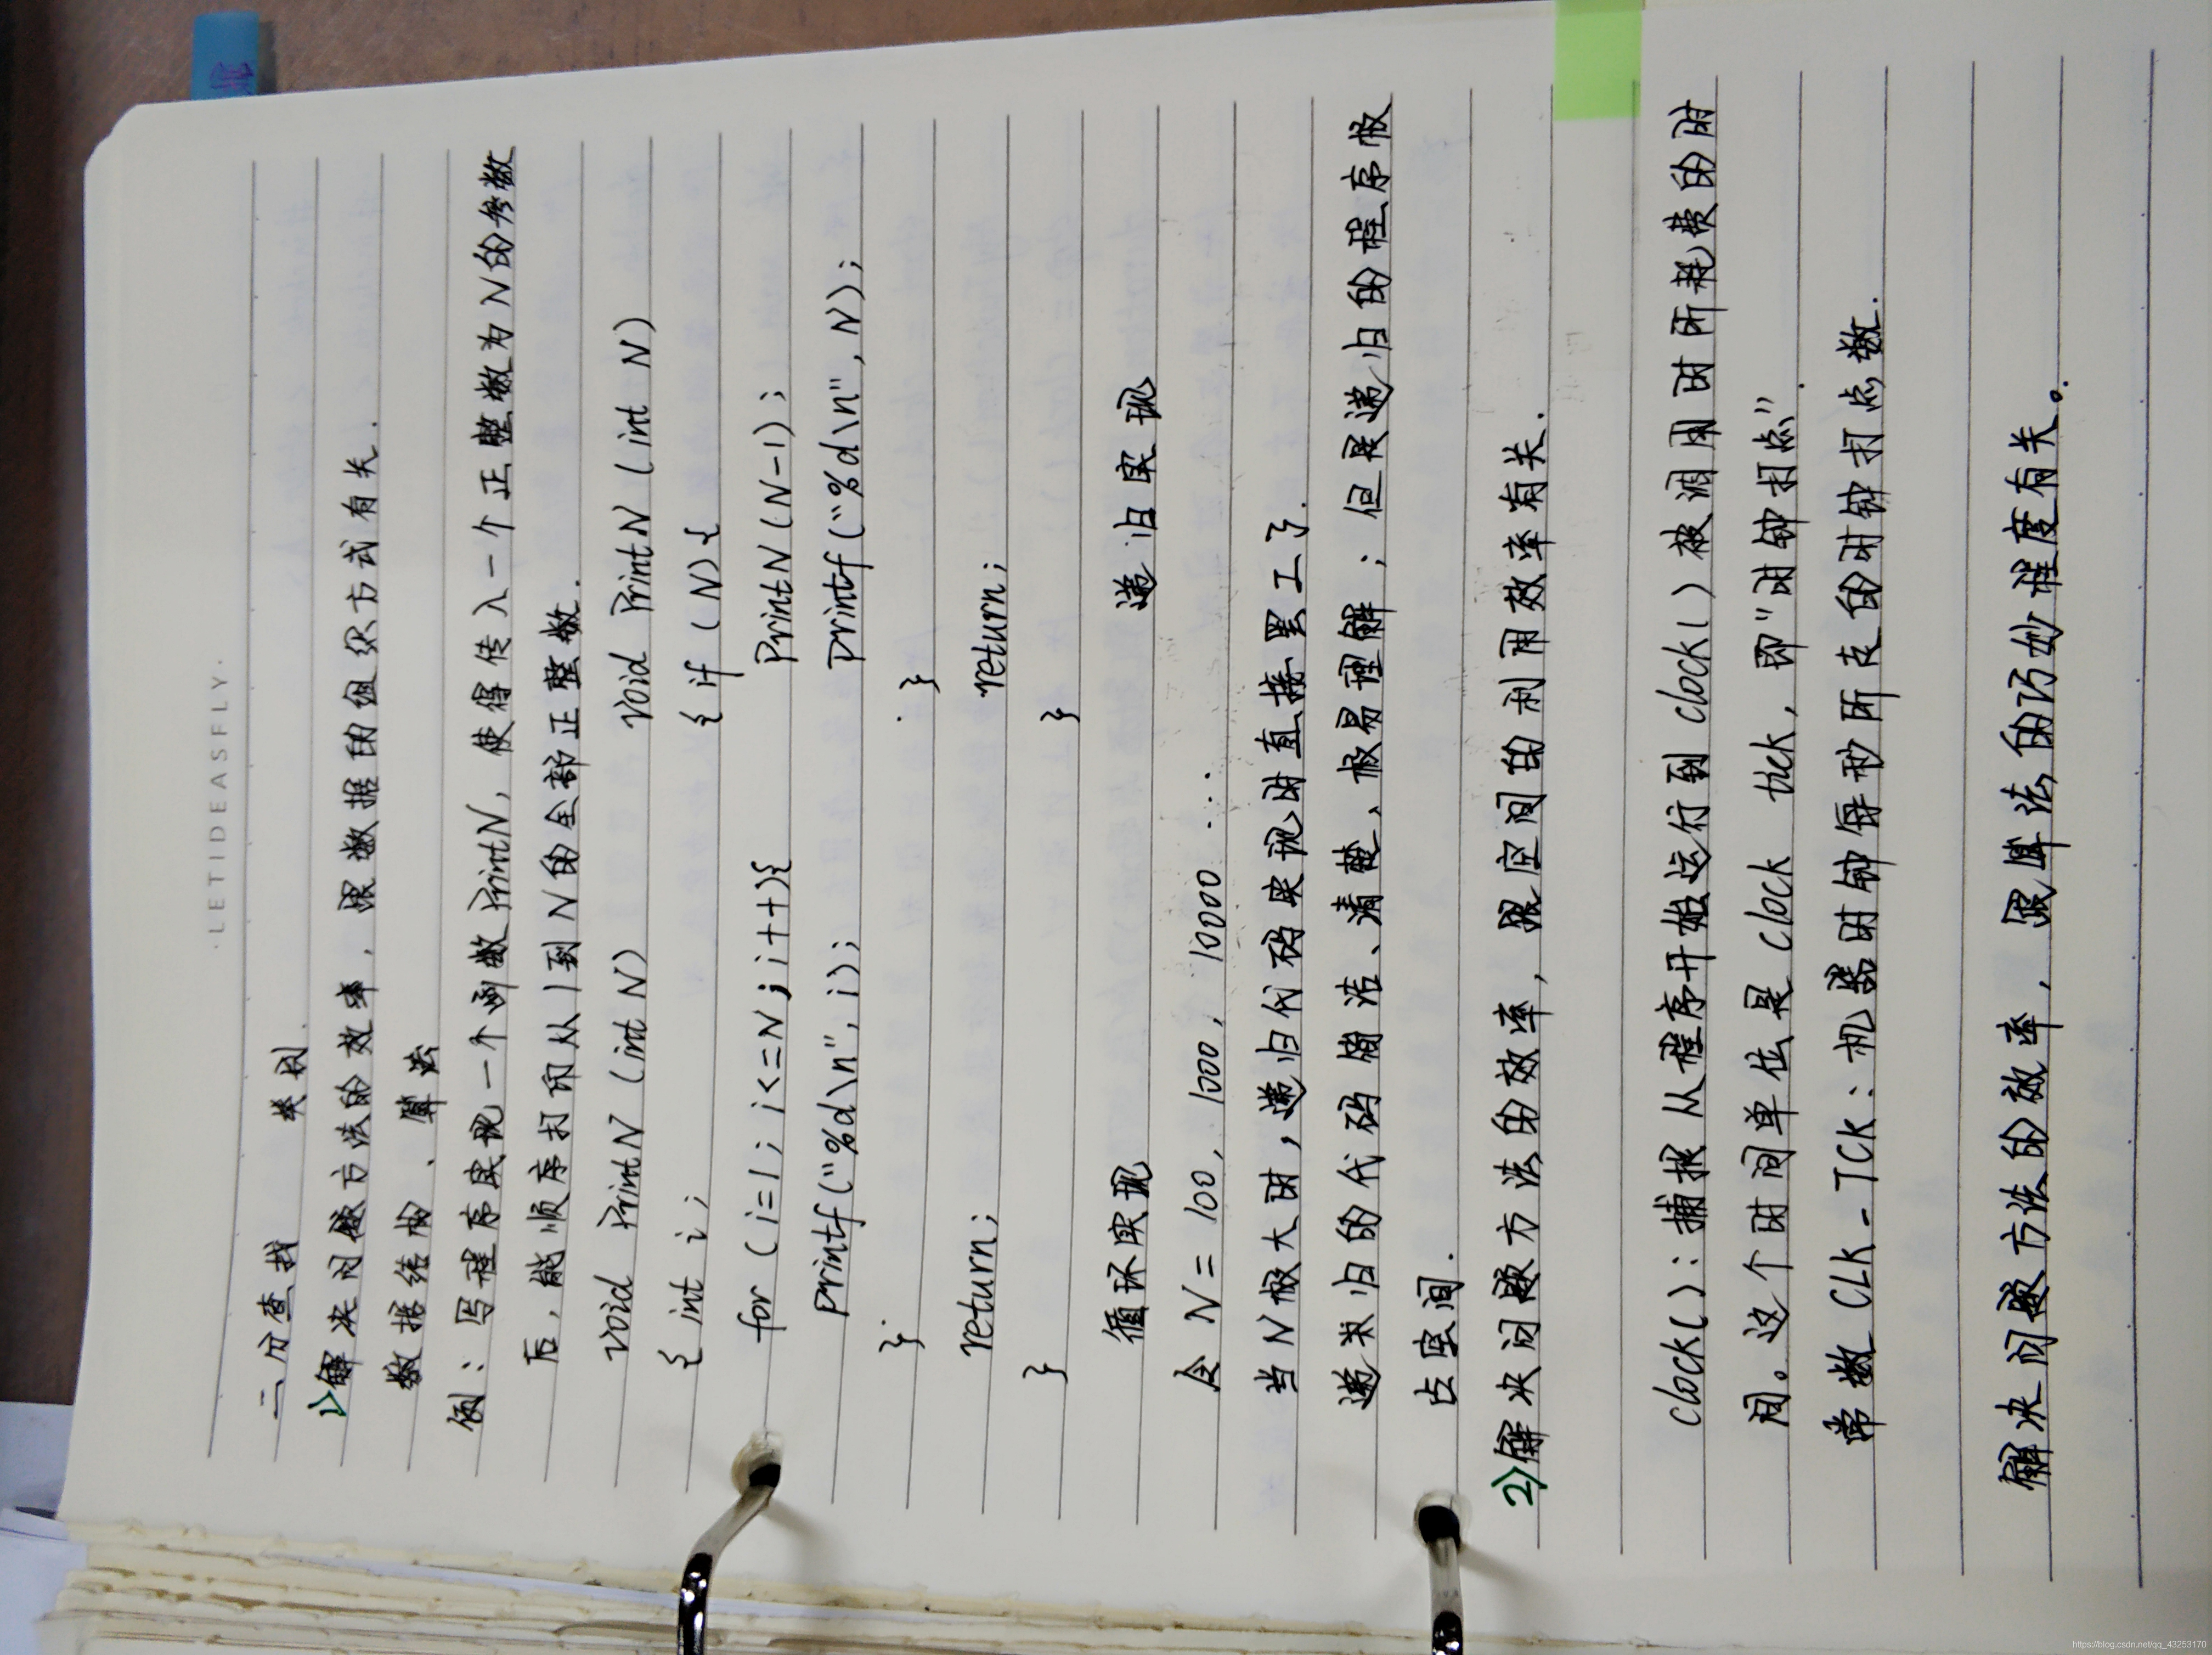 ·LETIDEASFLY·
二分查找 类别.
1>解决问题方法的效率, 跟数据的组织方式有关.
数据结构、算法
例: 写程序实现一个函数PrintN, 使得传入一个正整数为N的参数
后, 能顺序打印从1到N的全部正整数.
void PrintN (int N) void PrintN (int N)
{ int i; { if (N) {
for (i=1; i<=N; i++){ PrintN (N-1);
printf("%d\n", i); printf("%d\n", N);
} }
return; return;
} }
循环实现 递归实现
令 N = 100, 1000, 10000 ...
当N极大时, 递归代码实现时直接罢工了.
递类归的代码简洁、清楚、极易理解; 但是递归的程序极
占空间.
2>解决问题方法的效率, 跟空间的利用效率有关.
clock( ): 捕捉从程序开始运行到clock( )被调用时所耗费的时
间。这个时间单位是clock tick, 即"时钟打点".
常数CLK_TCK: 机器时钟每秒所走的时钟打点数.
解决问题方法的效率, 跟算法的巧妙程度有关。
https://blog.csdn.net/qq_43253170